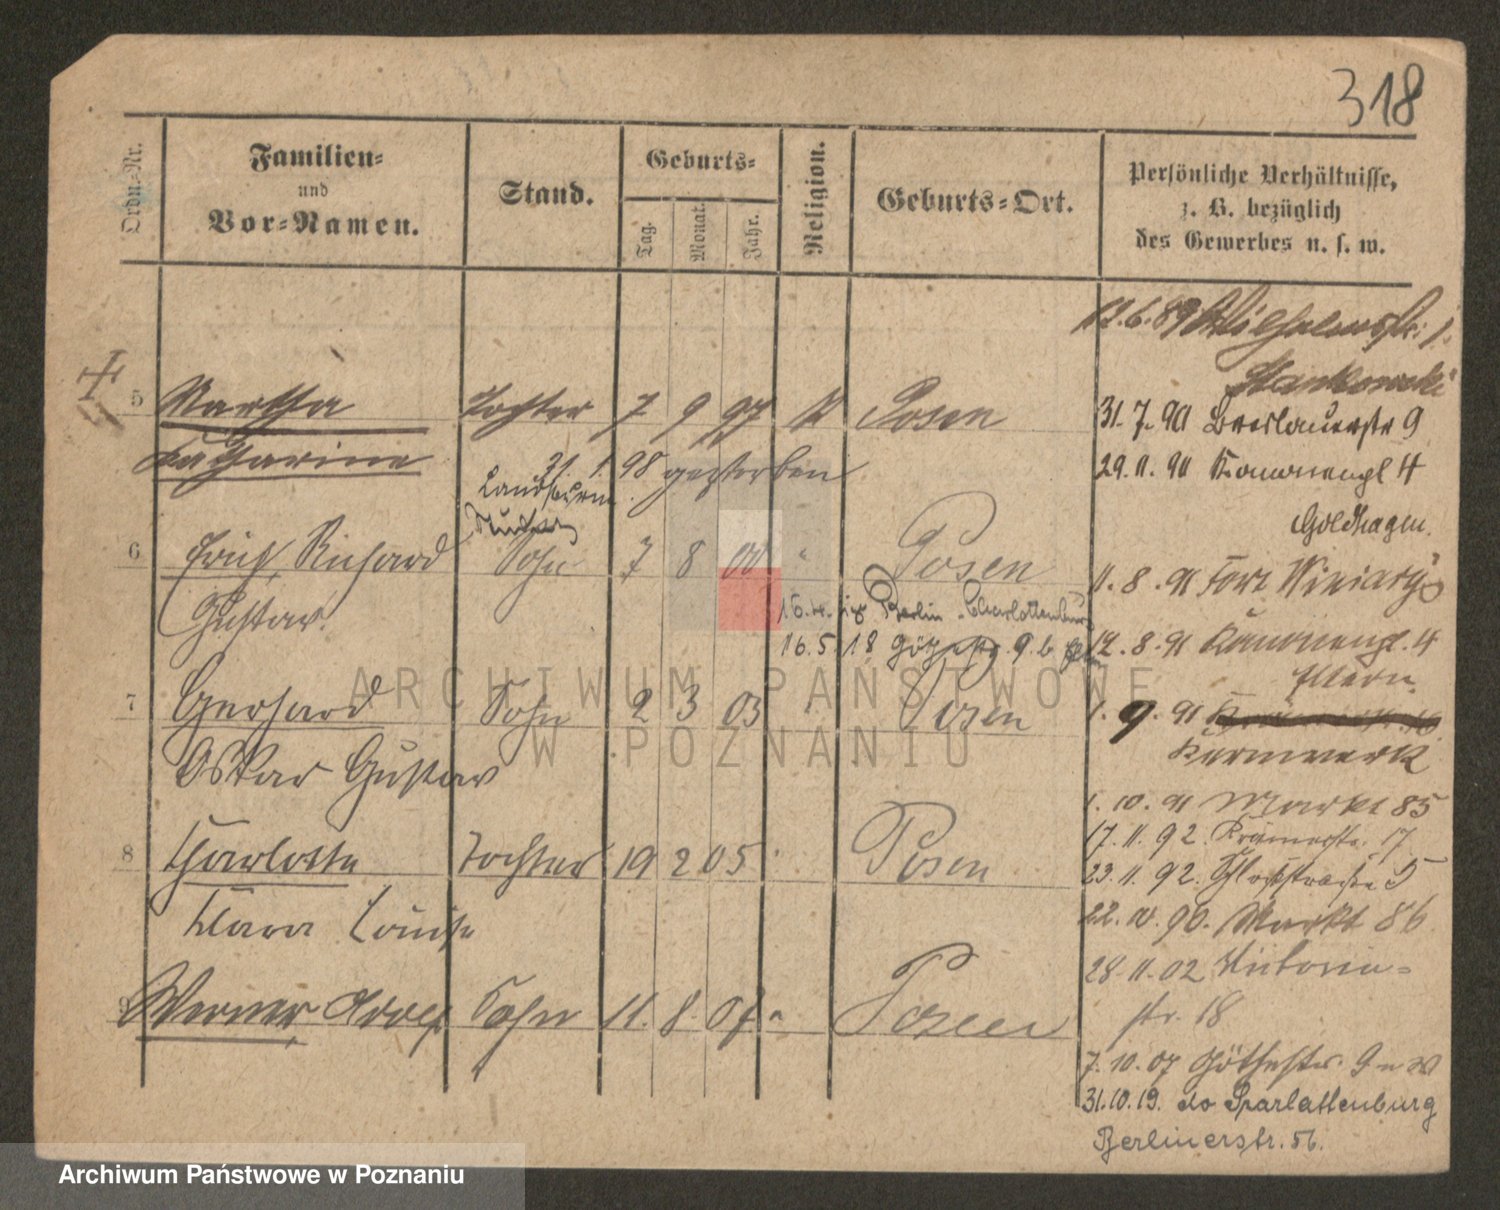 318
Ordn.-Nr.
Familien-
und
Vor-Namen.
Stand.
Geburts-
Tag.
Monat.
Jahr.
Religion.
Geburts-Ort.
Persönliche Verhältnisse,
z. B. bezüglich
des Gewerbes u. s. w.
12.6.89 Wilhelmstr.
Stankowski
5 Martha Tochter 7 9 97 Posen
31.7.90 Breslauerstr 9
Katharine
31. 1. 98 gestorben
29.11.90 Kanonenpl 4
Landsturm
Goldhagen.
6 Erich, Richard Sohn 7 8 00 Posen
11.8.91 Fort Winiary
Gustav.
Berlin-Charlottenburg
16.5.18 9
12.8.91 Kanonenpl. 4
Eltern.
7 Gerhard Sohn 2 3 03 Posen
1.9.91
Oskar Gustav
Kernwerk
1.10.91 Markt 85
17.11.92. Krämerstr. 17
8 Charlotte Tochter 19 2 05 Posen
23.11.92. Schloßstraße 5
Klara Louise
22.10.96. Markt 86
28.11.02 Victoria-
str. 18
9 Werner Adolf Sohn 11. 8. 07 Posen
7.10.07 Göthestr. 9
31.10.19. do Charlottenburg
Berlinerstr. 56.
ARCHIWUM PAŃSTWOWE
W POZNANIU
Archiwum Państwowe w Poznaniu